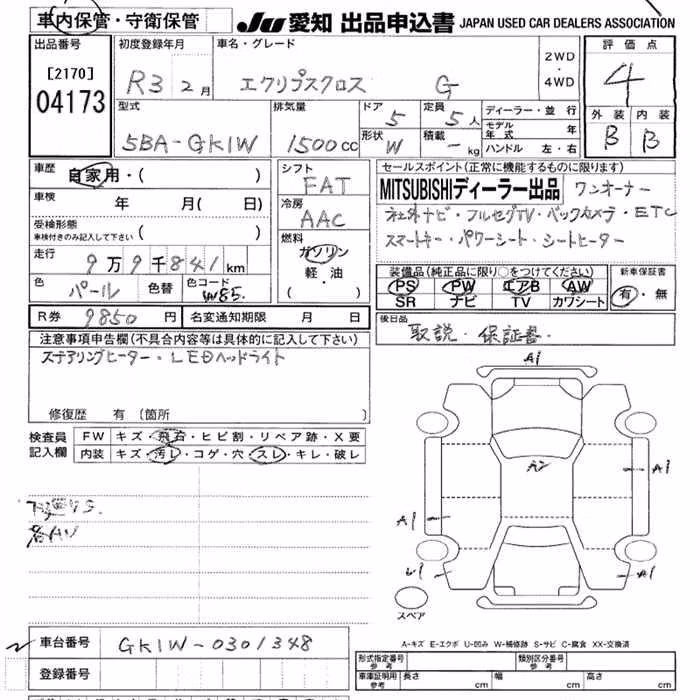 車内保管・守衛保管 JU 愛知 出品申込書 JAPAN USED CAR DEALERS ASSOCIATION
出品番号 初度登録年月 車名・グレード 2WD・4WD 評価点
[2170] 04173 R3 2月 エクリプスクロス G 4
型式 排気量 ドア 5 定員 5人 ディーラー・並行 外装 内装
5BA-GK1W 1500cc 形状 W 積載 - kg モデル年式 年 B B
ハンドル 左・右
車歴 自家用・( ) シフト FAT セールスポイント(正常に機能するものに限ります)
車検 年 月( 日) 冷房 AAC MITSUBISHIディーラー出品 ワンオーナー
受検形態 車検付きのみ記入して下さい ( ) 社外ナビ・フルセグTV・バックカメラ・ETC
走行 9万9千841km 燃料 ガソリン スマートキー・パワーシート・シートヒーター
色 パール 色替 色コード W85. 軽・油 ・( )
装備品(純正品に限り○をつけてください) 新車保証書
PS PW エアB AW 有・無
SR ナビ TV カワシート
R券 9850円 名変通知期限 月 日 後日品
取説・保証書・
注意事項申告欄(不具合内容等は具体的に記入して下さい)
ステアリングヒーター・LEDヘッドライト
修復歴 有 (箇所 )
検査員記入欄 FW キズ・飛石・ヒビ割・リペア跡・X要
内装 キズ・汚レ・コゲ・穴・スレ・キレ・破レ
A1
A1
A1
A1
スペア
A-キズ E-エクボ U-凹み W-補修跡 S-サビ C-腐食 XX-交換済
車台番号 GK1W-0301348
登録番号
形式指定番号 参考 類別区分番号 参考
車庫証明用 参考 長さ cm 幅 cm 高さ cm